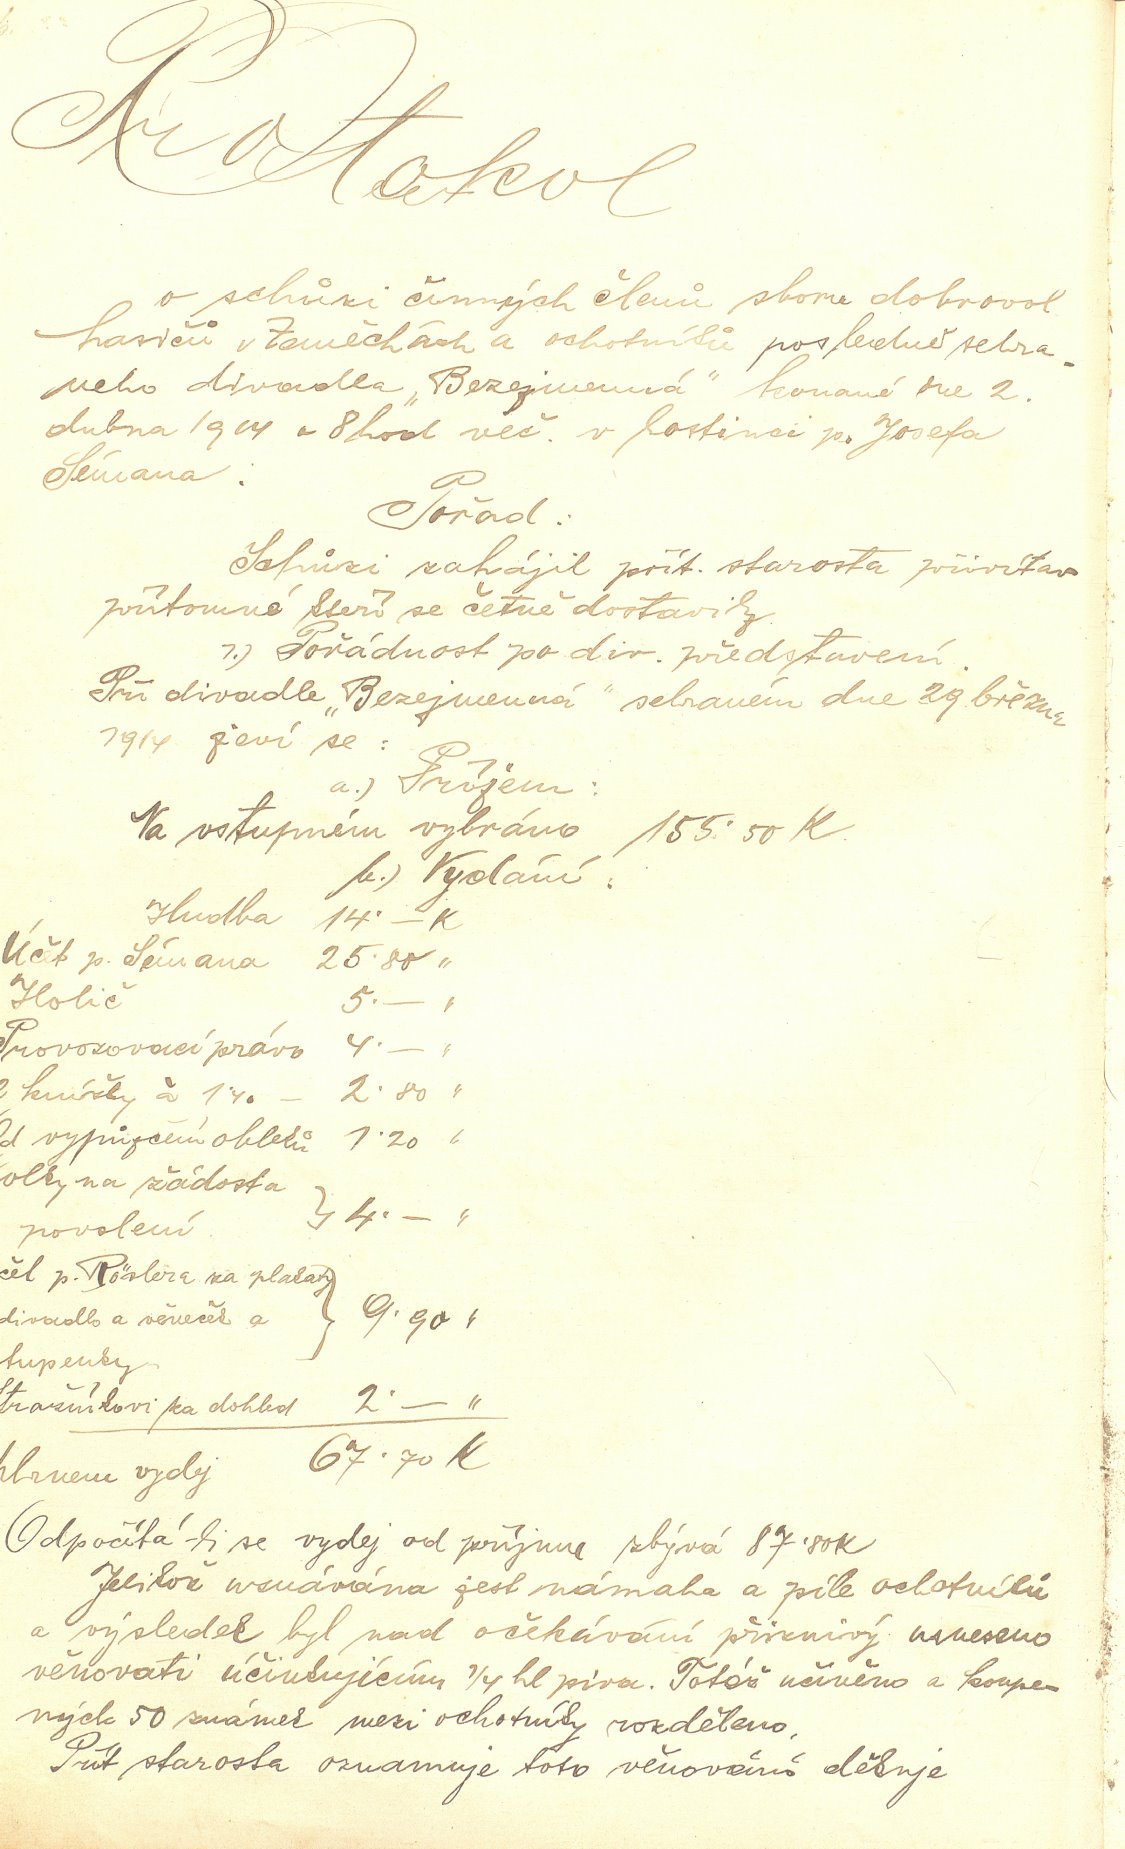 Protokol
o schůzi činných členů sboru dobrovol.
hasičů v Zeměchách a ochotníků posledně sehra-
neho divadla „Bezejmenná“ konané dne 2.
dubna 1914 o 8 hod več. v hostinci p. Josefa
Šímana :
Pořad :
Schůzi zahájil přít. starosta přivítav
přítomné kteří se četně dostavily.
1.) Pořádnost po div. představení.
Při divadle „Bezejmenná“ sehraném dne 29 března
1914 jeví se :
a.) Příjem :
Na vstupném vybráno 155·50 K.
b.) Vydání :
Hudba 14·— K
Účet p. Šímana 25·80 „
Holič 5·— „
Provozovací právo 4·— „
2 knížky à 1·40 — 2·80 „
d vypůjčení obleků 1·20 „
olky na žádost a
povolení } 4·— „
čet p. Röslera za plakáty
divadlo a věneček a } 9·90 „
tupenky
trážníkovi za dohled 2·— „
hrnem vydej 67·70 K
Odpočítá-li se vydej od příjmu zbývá 87·80 K
Jelikož uznávána jest námaha a píle ochotníků
a výsledek byl nad očekávání příznivý usneseno
věnovati účinkujícím 1/4 hl piva. Totéž učiněno a koupe-
ných 50 známek mezi ochotníky rozděleno.
Přít starosta oznamuje toto věnování děkuje